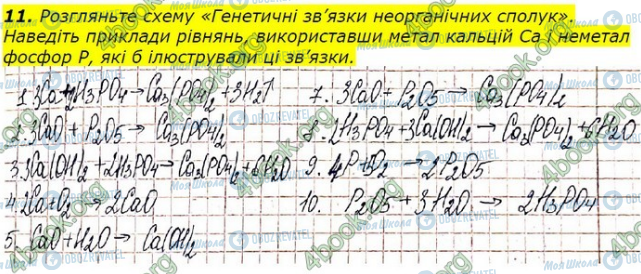 11. Розгляньте схему «Генетичні зв’язки неорганічних сполук».
Наведіть приклади рівнянь, використавши метал кальцій Ca і неметал
фосфор P, які б ілюстрували ці зв’язки.
1. 3Ca + 2H3PO4 → Ca3(PO4)2 + 3H2↑
2. 3CaO + P2O5 → Ca3(PO4)2
3. 3Ca(OH)2 + 2H3PO4 → Ca3(PO4)2 + 6H2O
4. 2Ca + O2 → 2CaO
5. CaO + H2O → Ca(OH)2
7. 3CaO + P2O5 → Ca3(PO4)2
8. 2H3PO4 + 3Ca(OH)2 → Ca3(PO4)2 + 6H2O
9. 4P + 5O2 → 2P2O5
10. P2O5 + 3H2O → 2H3PO4